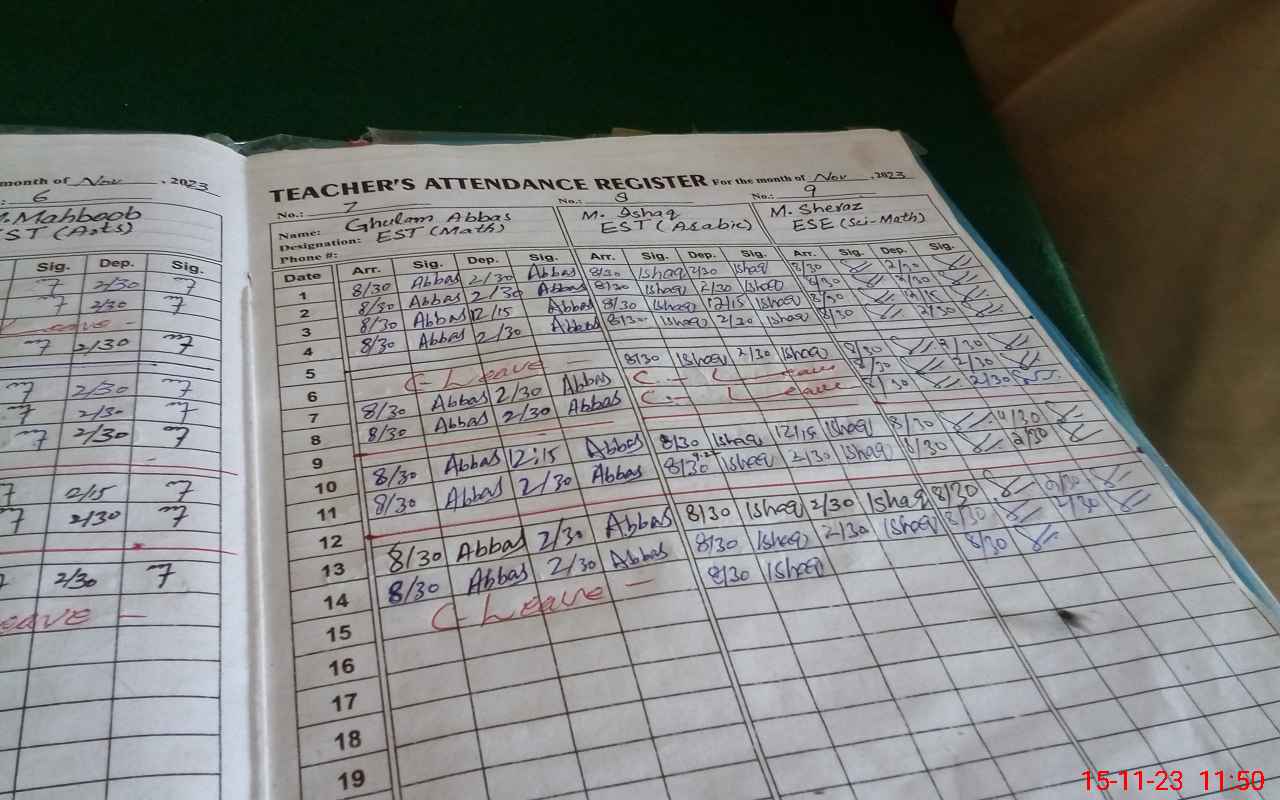 month of Nov, 2023
: 6
M. Mahboob
EST (Arts)
Sig. Dep. Sig.
2/30
2/30
Leave -
2/30
2/30
2/30
2/30
2/15
2/30
2/30
eave -
TEACHER'S ATTENDANCE REGISTER For the month of Nov, 2023
No.: 7 No.: 8 No.: 9
Name: Ghulam Abbas M. Ishaq M. Sheraz
Designation: EST (Math) EST (Arabic) ESE (Sci-Math)
Phone #:
Date Arr. Sig. Dep. Sig. Arr. Sig. Dep. Sig. Arr. Sig. Dep. Sig.
1 8/30 Abbas 2/30 Abbas 8/30 Ishaq 2/30 Ishaq 8/30 2/30
2 8/30 Abbas 2/30 Abbas 8/30 Ishaq 2/30 Ishaq 8/30 2/30
3 8/30 Abbas 12/15 Abbas 8/30 Ishaq 12/15 Ishaq 8/30 12/15
4 8/30 Abbas 2/30 Abbas 8/30 Ishaq 2/30 Ishaq 8/30 2/30
5
6 C Leave - 8/30 Ishaq 2/30 Ishaq 8/30 2/30
7 8/30 Abbas 2/30 Abbas C - Leave 8/30 2/30
8 8/30 Abbas 2/30 Abbas C - Leave 8/30 2/30
9
10 8/30 Abbas 12:15 Abbas 8/30 Ishaq 12/15 Ishaq 8/30 12/30
11 8/30 Abbas 2/30 Abbas 8/30 Ishaq 2/30 Ishaq 8/30 2/30
12
13 8/30 Abbas 2/30 Abbas 8/30 Ishaq 2/30 Ishaq 8/30 2/30
14 8/30 Abbas 2/30 Abbas 8/30 Ishaq 2/30 Ishaq 8/30 2/30
15 C Leave - 8/30 Ishaq 8/30
16
17
18
19
15-11-23 11:50